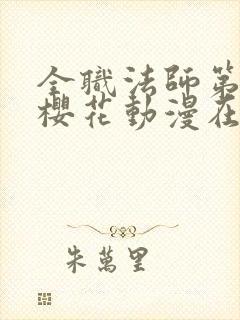 全職法師第
櫻花動漫在
朱萬里